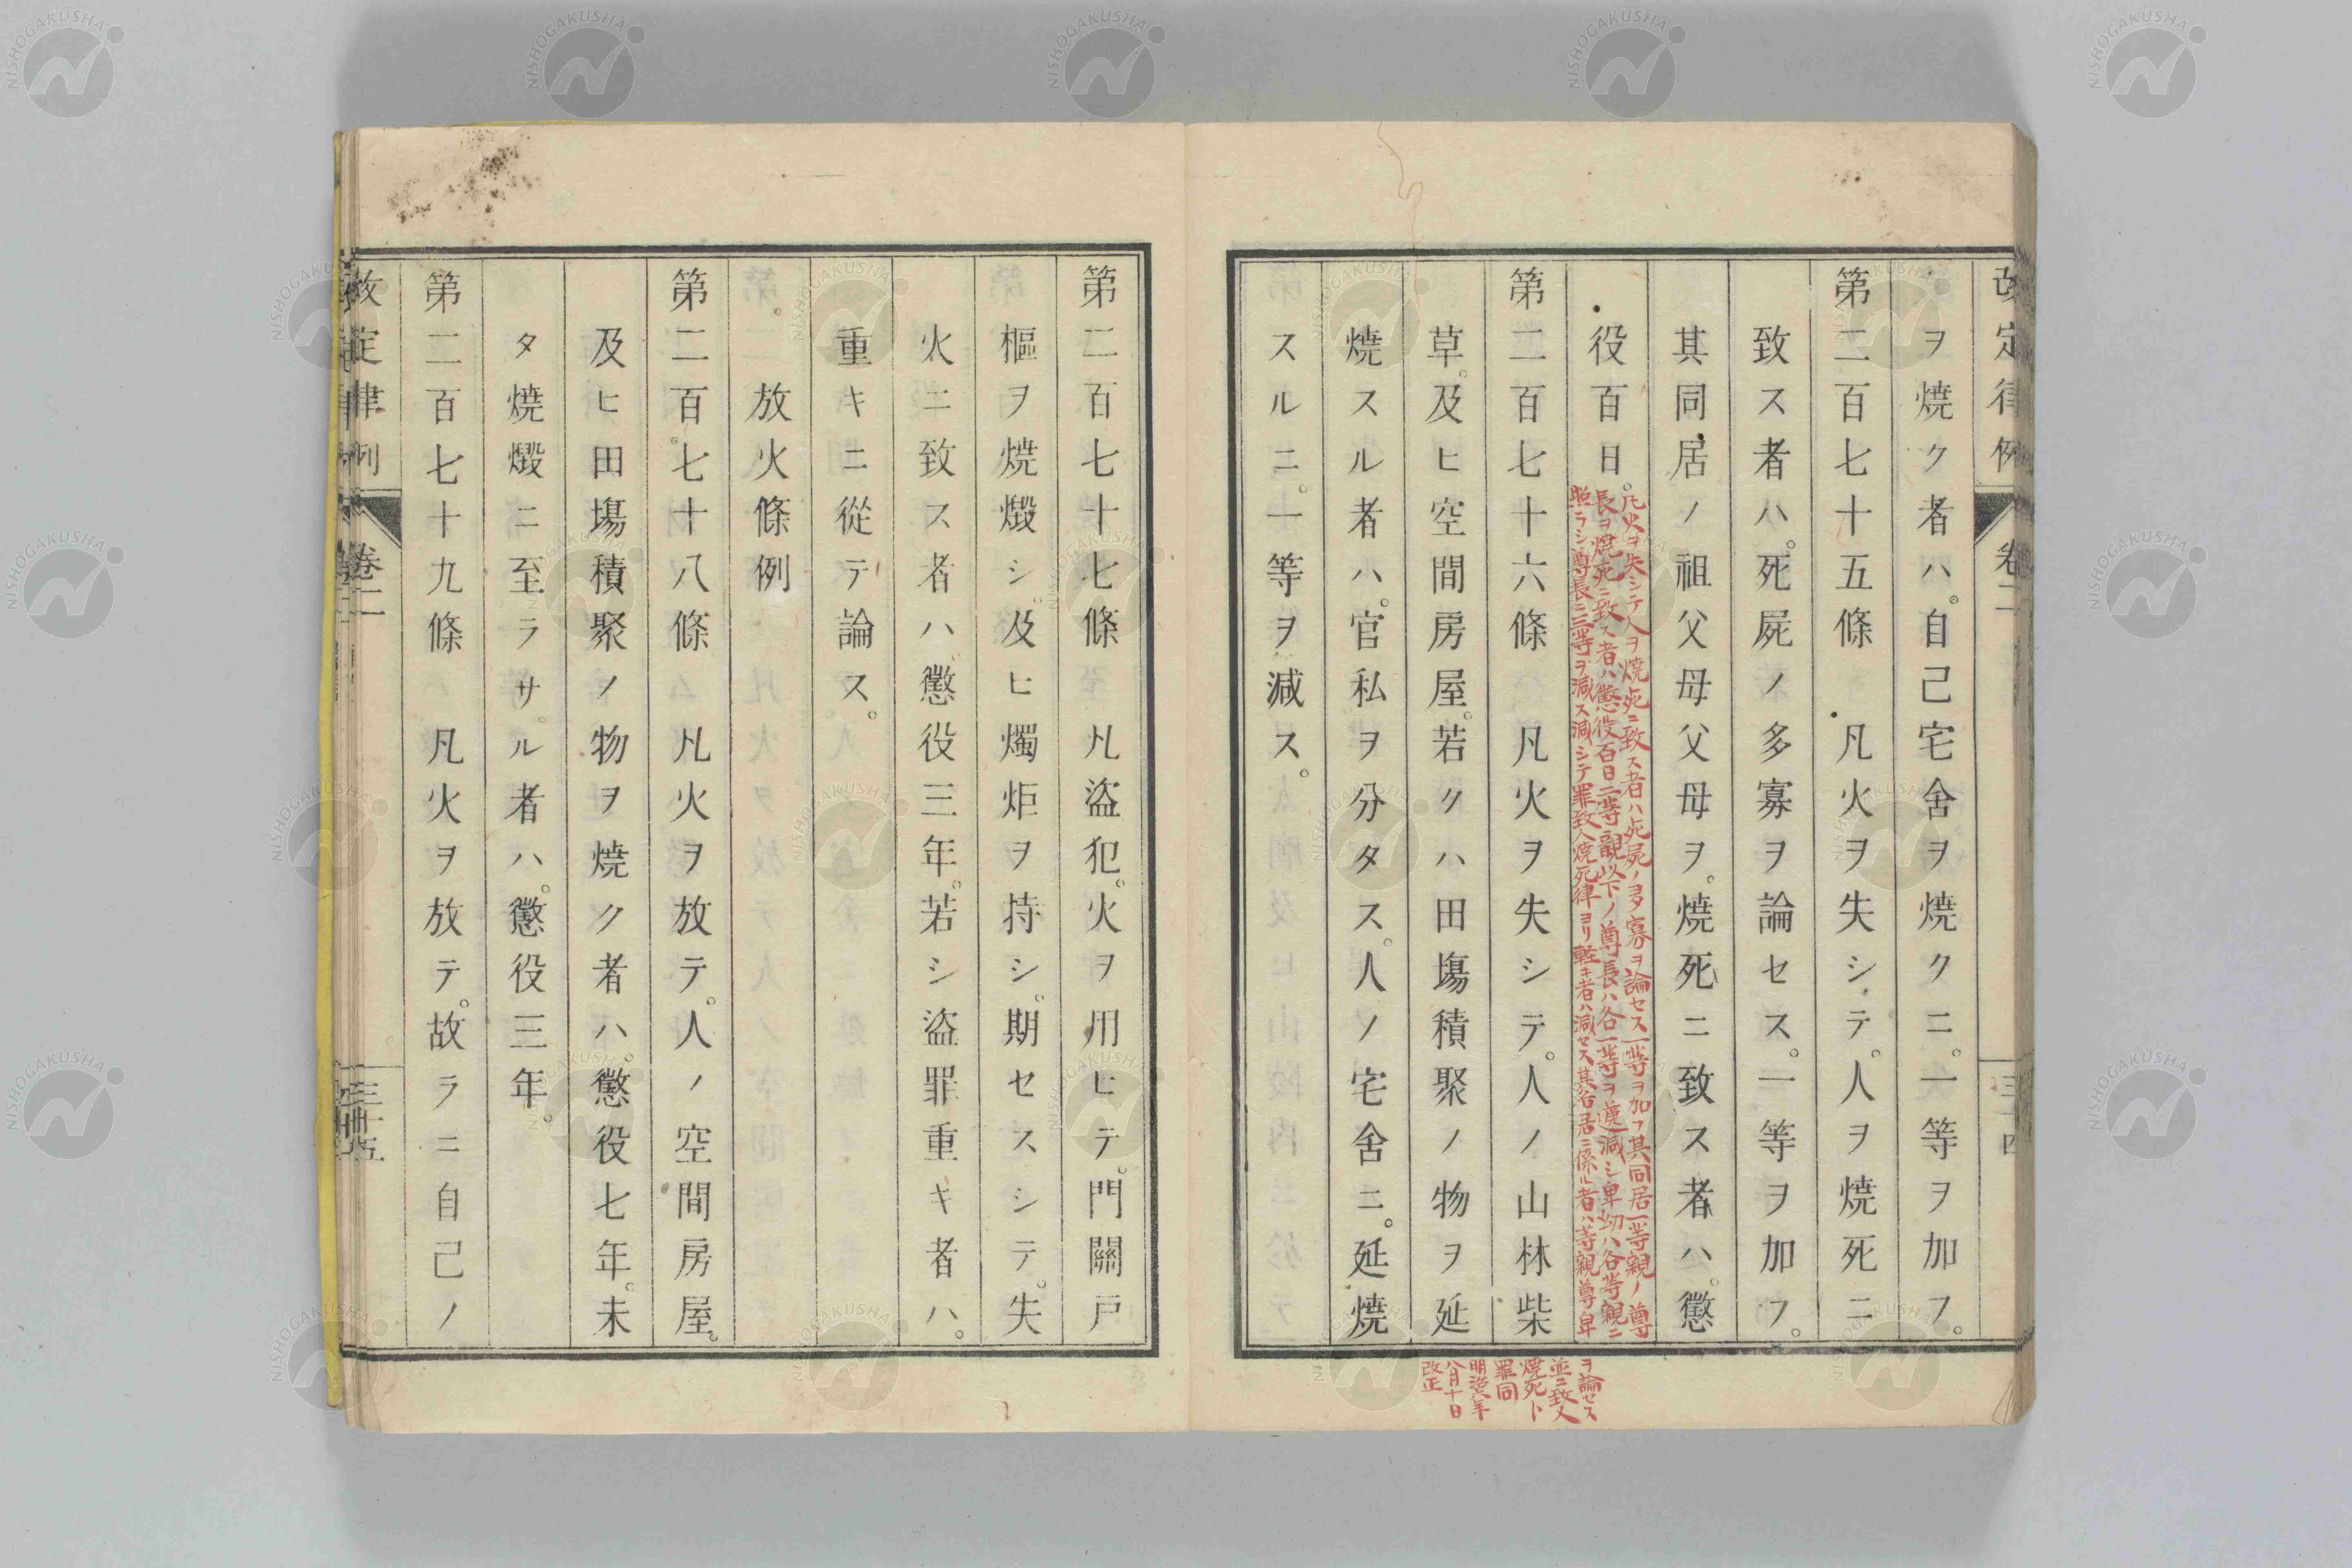 改定律例 卷二 三十四
ヲ燒ク者ハ。自己宅舍ヲ燒クニ。一等ヲ加フ。
第二百七十五條 凡火ヲ失シテ。人ヲ燒死ニ
致ス者ハ。死屍ノ多寡ヲ論セス。一等ヲ加フ。
其同居ノ祖父母父母ヲ。燒死ニ致ス者ハ。懲
役百日。
凡火ヲ失シテ人ヲ燒死ニ致ス者ハ死屍ノ多寡ヲ論セス一等ヲ加フ其同居一等親ノ尊
長ヲ燒死ニ致ス者ハ懲役百日二等親以下ノ尊長ハ各一等ヲ遞減シ卑幼ハ各等親ニ
照ラシ尊長ニ三等ヲ減ス減シテ罪致人燒死律ヨリ輕キ者ハ減セス其各居ニ係ル者ハ等親尊卑
ヲ論セス
並ニ致人
燒死ト
罪同
明治八年
八月十日
改正
第二百七十六條 凡火ヲ失シテ。人ノ山林柴
草。及ヒ空間房屋。若クハ田塲積聚ノ物ヲ延
燒スル者ハ。官私ヲ分タス。人ノ宅舍ニ。延燒
スルニ。一等ヲ減ス。
第二百七十七條 凡盜犯。火ヲ用ヒテ。門關戸
樞ヲ燒燬シ。及ヒ燭炬ヲ持シ。期セスシテ。失
火ニ致ス者ハ。懲役三年。若シ盜罪重キ者ハ。
重キニ從テ論ス。
放火條例
第二百七十八條 凡火ヲ放テ。人ノ空間房屋。
及ヒ田塲積聚ノ物ヲ燒ク者ハ。懲役七年。未
タ燒燬ニ至ラサル者ハ。懲役三年。
第二百七十九條 凡火ヲ放テ。故ラニ自己ノ
改定律例 卷二 三十五
NISHOGAKUSHA